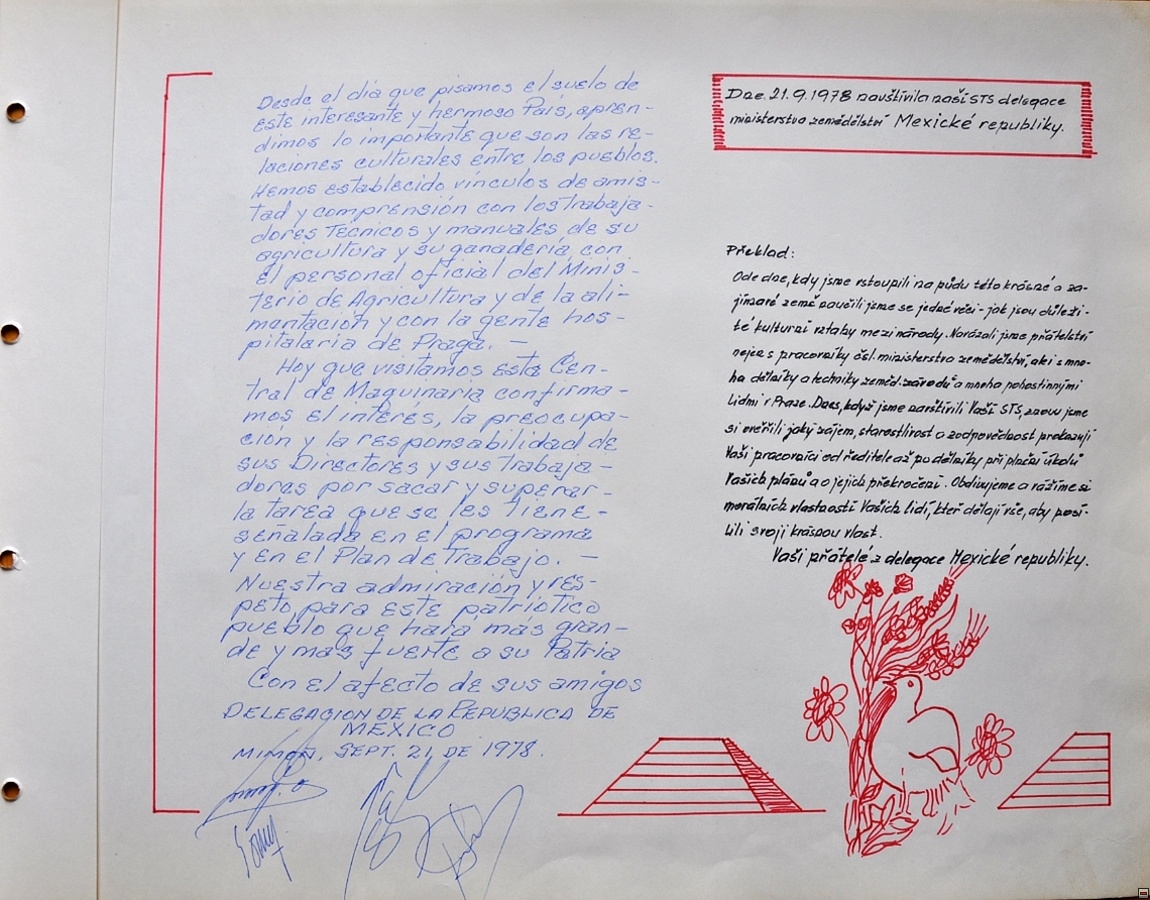 Desde el día que pisamos el suelo de
este interesante y hermoso País, apren-
dimos lo importante que son las re-
laciones culturales entre los pueblos.
Hemos establecido vínculos de amis-
tad y comprensión con los trabaja-
dores Técnicos y manuales de su
agricultura y su ganadería, con
el personal oficial del Minis-
terio de Agricultura y de la ali-
mentación y con la gente hos-
pitalaria de Praga. —
Hoy que visitamos esta Cen-
tral de Maquinaria confirma-
mos el interés, la preocupa-
ción y la responsabilidad de
sus Directores y sus trabaja-
dores por sacar y superar-
la tarea que se les tiene-
señalada en el programa
y en el Plan de Trabajo. —
Nuestra admiración y res-
peto, para este patriótico
pueblo que hará más gran-
de y mas fuerte a su Patria
Con el afecto de sus amigos
DELEGACION DE LA REPUBLICA DE
MEXICO
MIMOŇ, SEPT. 21, DE 1978.
Dne 21.9.1978 navštívila naší STS delegace
ministerstva zemědělství Mexické republiky.
Překlad:
Ode dne, kdy jsme vstoupili na půdu této krásné a za-
jímavé země naučili jsme se jedné věci - jak jsou důleži-
té kulturní vztahy mezi národy. Navázali jsme přátelství
nejen s pracovníky čsl. ministerstva zemědělství, ale i s mno-
ha dělníky a techniky zeměd. závodů a mnoha pohostinnými
lidmi v Praze. Dnes, když jsme navštívili Vaší STS, znovu jsme
si ověřili jaký zájem, starostlivost a zodpovědnost prokazují
Vaši pracovníci od ředitele až po dělníky při plnění úkolů
Vašich plánů a o jejich překročení. Obdivujeme a vážíme si
morálních vlastností Vašich lidí, kteří dělají vše, aby posí-
lili svoji krásnou vlast.
Vaši přátelé z delegace Mexické republiky.